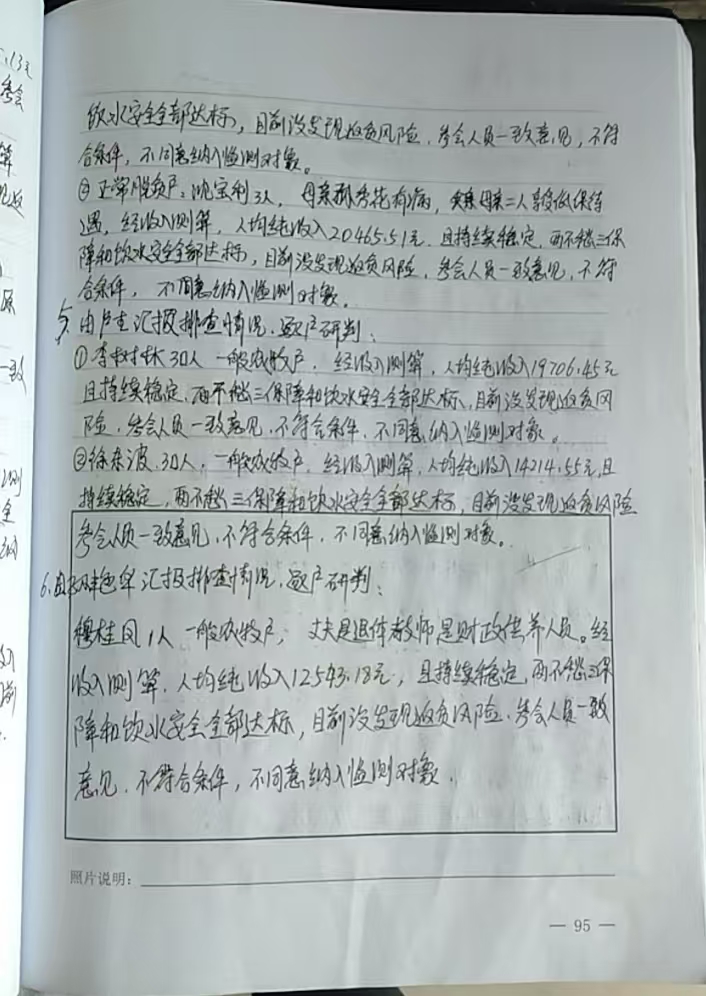 饮水安全全部达标，目前没发现返贫风险，参会人员一致意见，不符
合条件，不同意纳入监测对象。
② 正常脱贫户：沈宝利3人，母亲孙秀花有病，母亲二人享受低保待
遇，经收入测算，人均纯收入20465.51元，且持续稳定，两不愁三保
障和饮水安全全部达标，目前没发现返贫风险，参会人员一致意见，不符
合条件，不同意纳入监测对象。
5. 由卢生汇报排查情况，逐户研判：
① 李树林 3口人 一般农牧户，经收入测算，人均纯收入19706.45元
且持续稳定，两不愁三保障和饮水安全全部达标，目前没发现返贫风
险，参会人员一致意见，不符合条件，不同意纳入监测对象。
② 徐东波，3口人，一般农牧户，经收入测算，人均纯收入14214.55元，且
持续稳定，两不愁三保障和饮水安全全部达标，目前没发现返贫风险
参会人员一致意见，不符合条件，不同意纳入监测对象。
6. 华汇报排查情况，逐户研判：
穆桂凤 1人 一般农牧户，丈夫是退休教师是财政供养人员。经
收入测算，人均纯收入12543.18元，且持续稳定，两不愁三保
障和饮水安全全部达标，目前没发现返贫风险，参会人员一致
意见，不符合条件，不同意纳入监测对象。
照片说明：
— 95 —